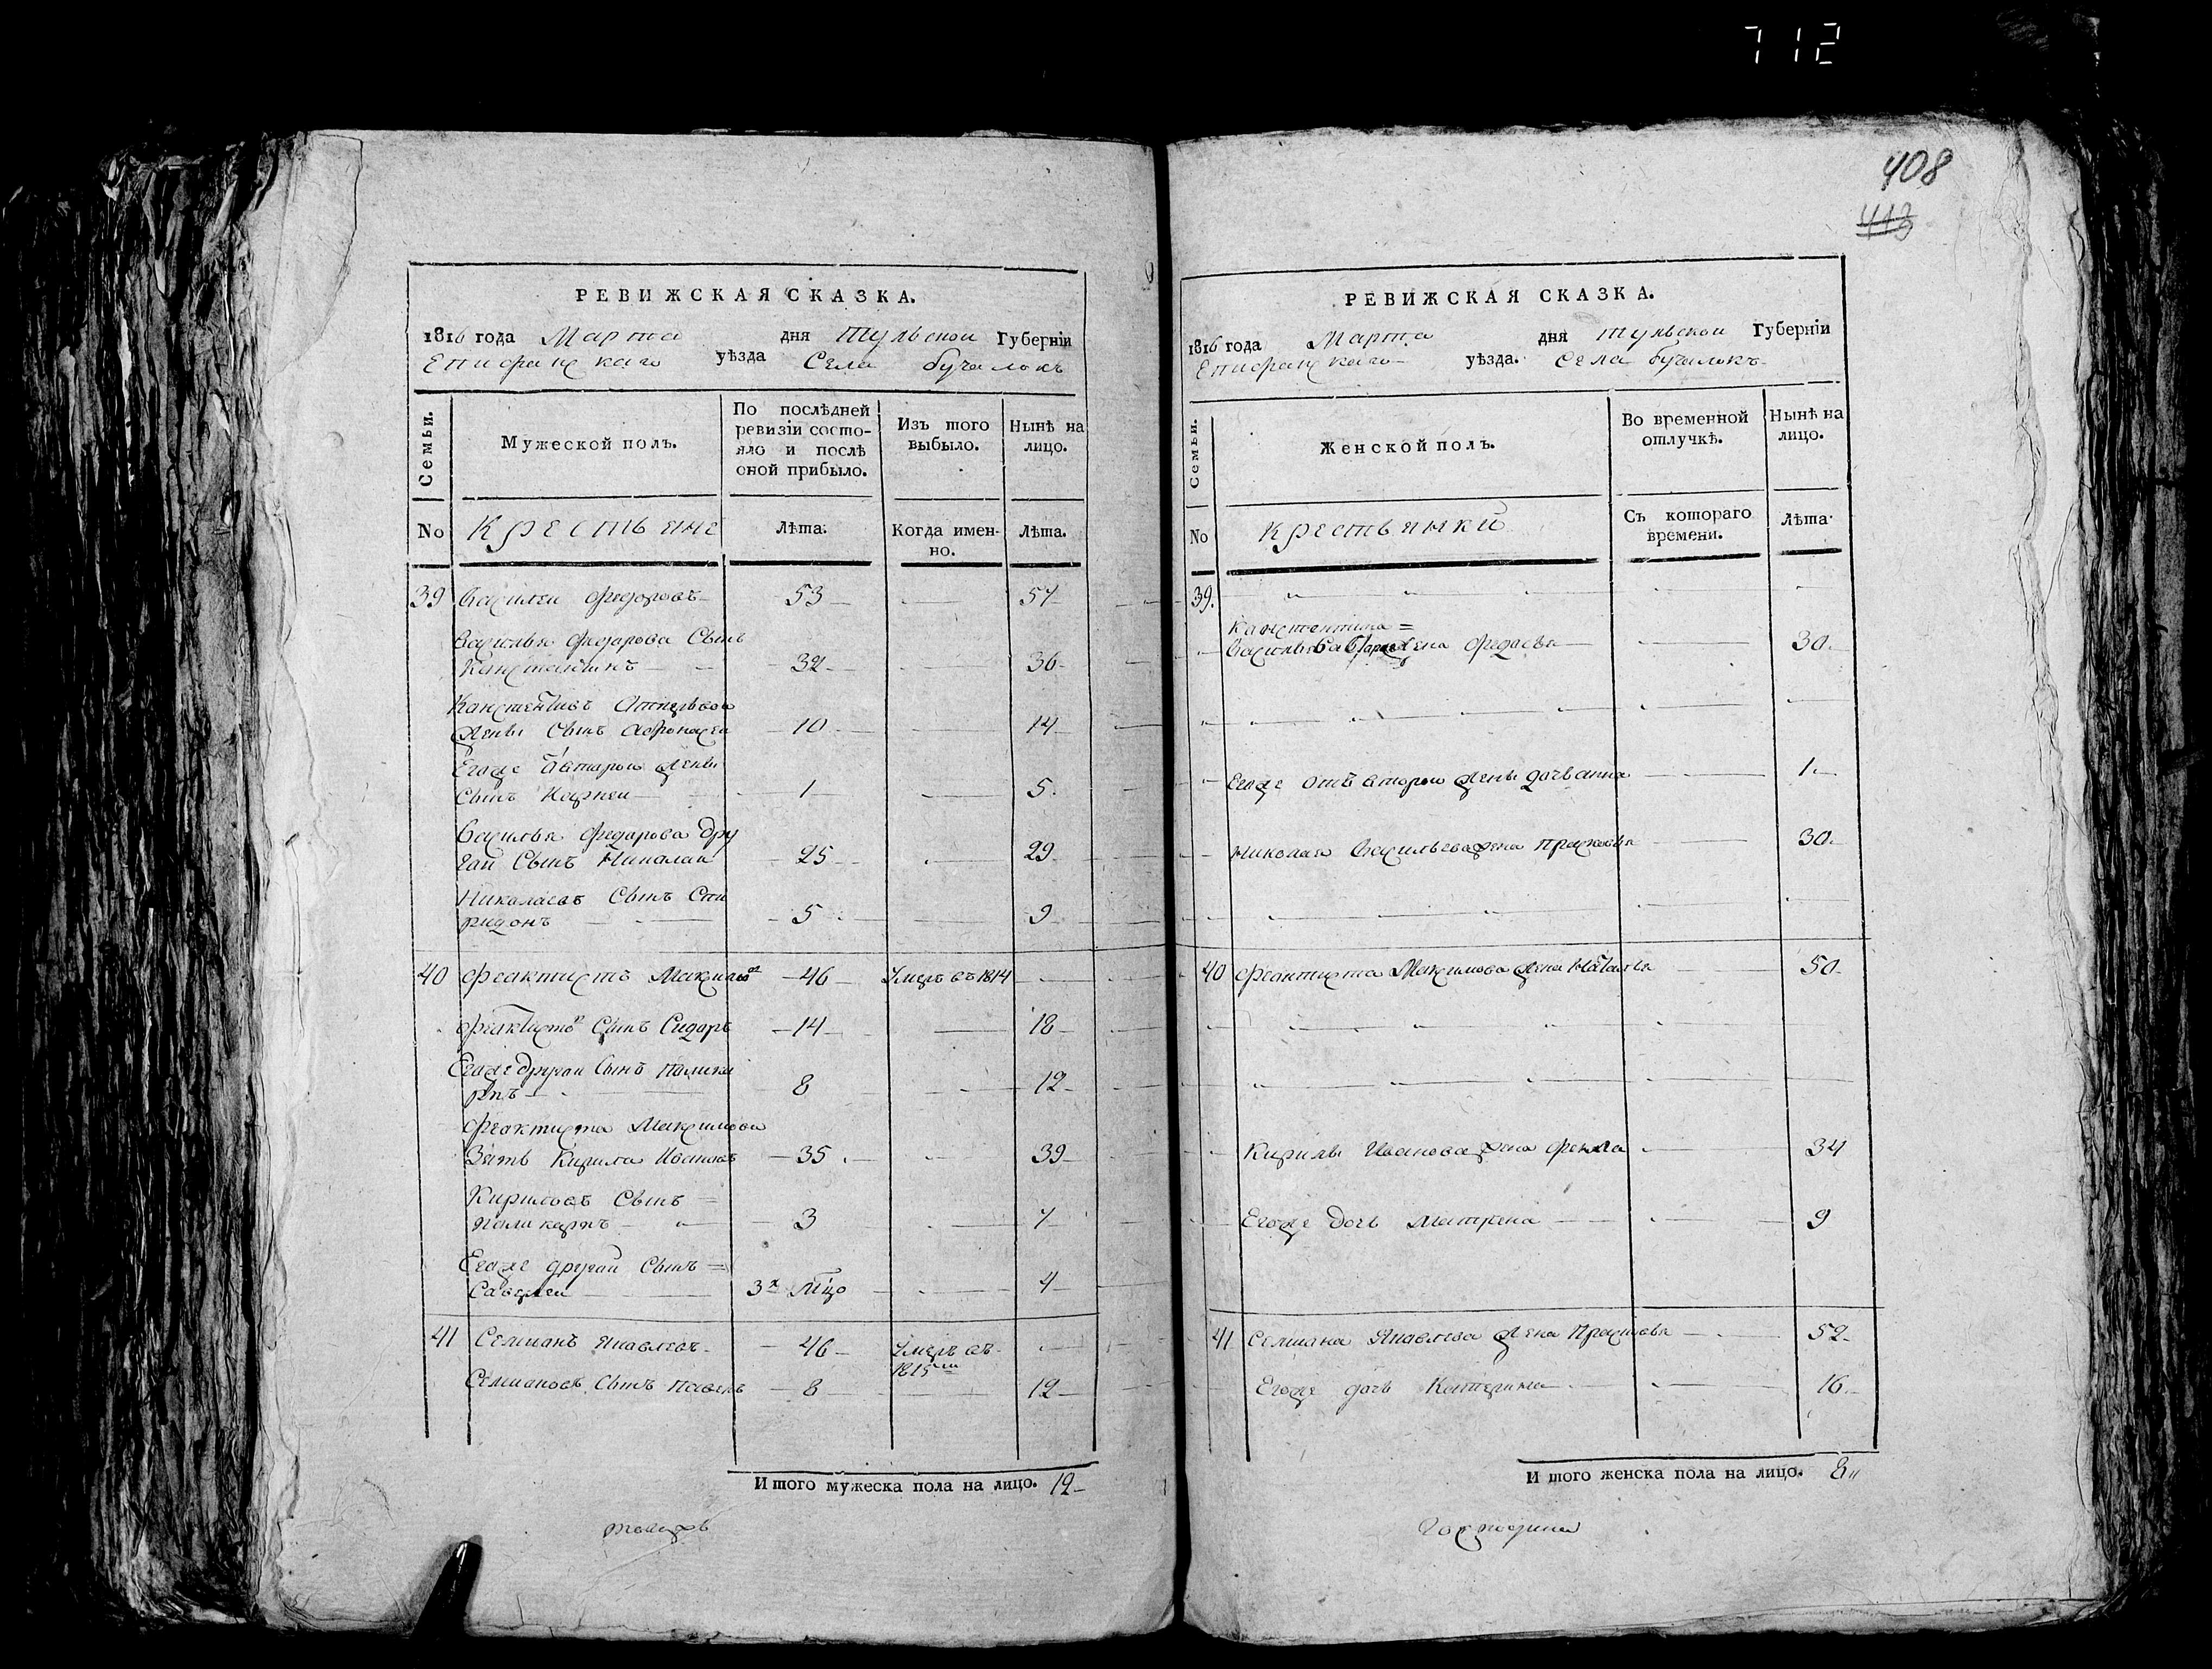 712
408
413
РЕВИЖСКАЯ СКАЗКА.
1816 года Марта дня Тульской Губерніи
Епифанскаго уѣзда Села бучалокъ
Семьи.
Мужеской полъ.
По послѣдней ревизіи состо-
яло и послѣ оной прибыло.
Изъ того выбыло.
Нынѣ на лицо.
No Крестьяне Лѣта. Когда имен-
но. Лѣта.
39 Василеи Федоровъ 53 57
Василья Федарова Сынъ
Канстентинъ 32 36
Канстентиновъ Отпервои
жены Сынъ Афонасеи 10 14
Егоже отвтарои жены
Сынъ Карнеи 1 5
Василья Федарова дру
гаи Сынъ Николаи 25 29
Николаевъ Сынъ Спи
ридонъ 5 9
40 Феактистъ Максимовъ 46 Умеръ въ 1814
Феактистовъ Сынъ Сидаръ 14 18
Егоже другаи Сынъ Полика
рпъ 8 12
Феактиста Максимова
Зять Кирила Ивановъ 35 39
Кириловъ Сынъ =
Поликарпъ 3 7
Егоже другаи Сынъ =
Савелеи 4
41 Семионъ Яковлевъ 46 Умеръ въ
1815мъ
Семионовъ Сынъ Павелъ 8 12
Итого мужеска пола на лицо. 12
РЕВИЖСКАЯ СКАЗКА.
1816 года Марта дня Тульскои Губерніи
Епифанскаго уѣзда. Села бучалокъ
Семьи.
Женской полъ.
Во временной отлучкѣ.
Нынѣ на лицо.
No Крестьянки Съ котораго
времени. Лѣта
39.
Канстентина =
Васильева втарая жена Федосья 30
Егоже отъ второи жены дочь анна 1
Николая Васильева жена Прасковья 30
40 Феактиста Максимова жена Наталья 50
Кирилы Иванова жена Фекла 34
Егоже дочь Матрена 9
41 Семиона Яковлева жена Прасковья 52
Егоже дочь Катерина 16
Итого женска пола на лицо. 8